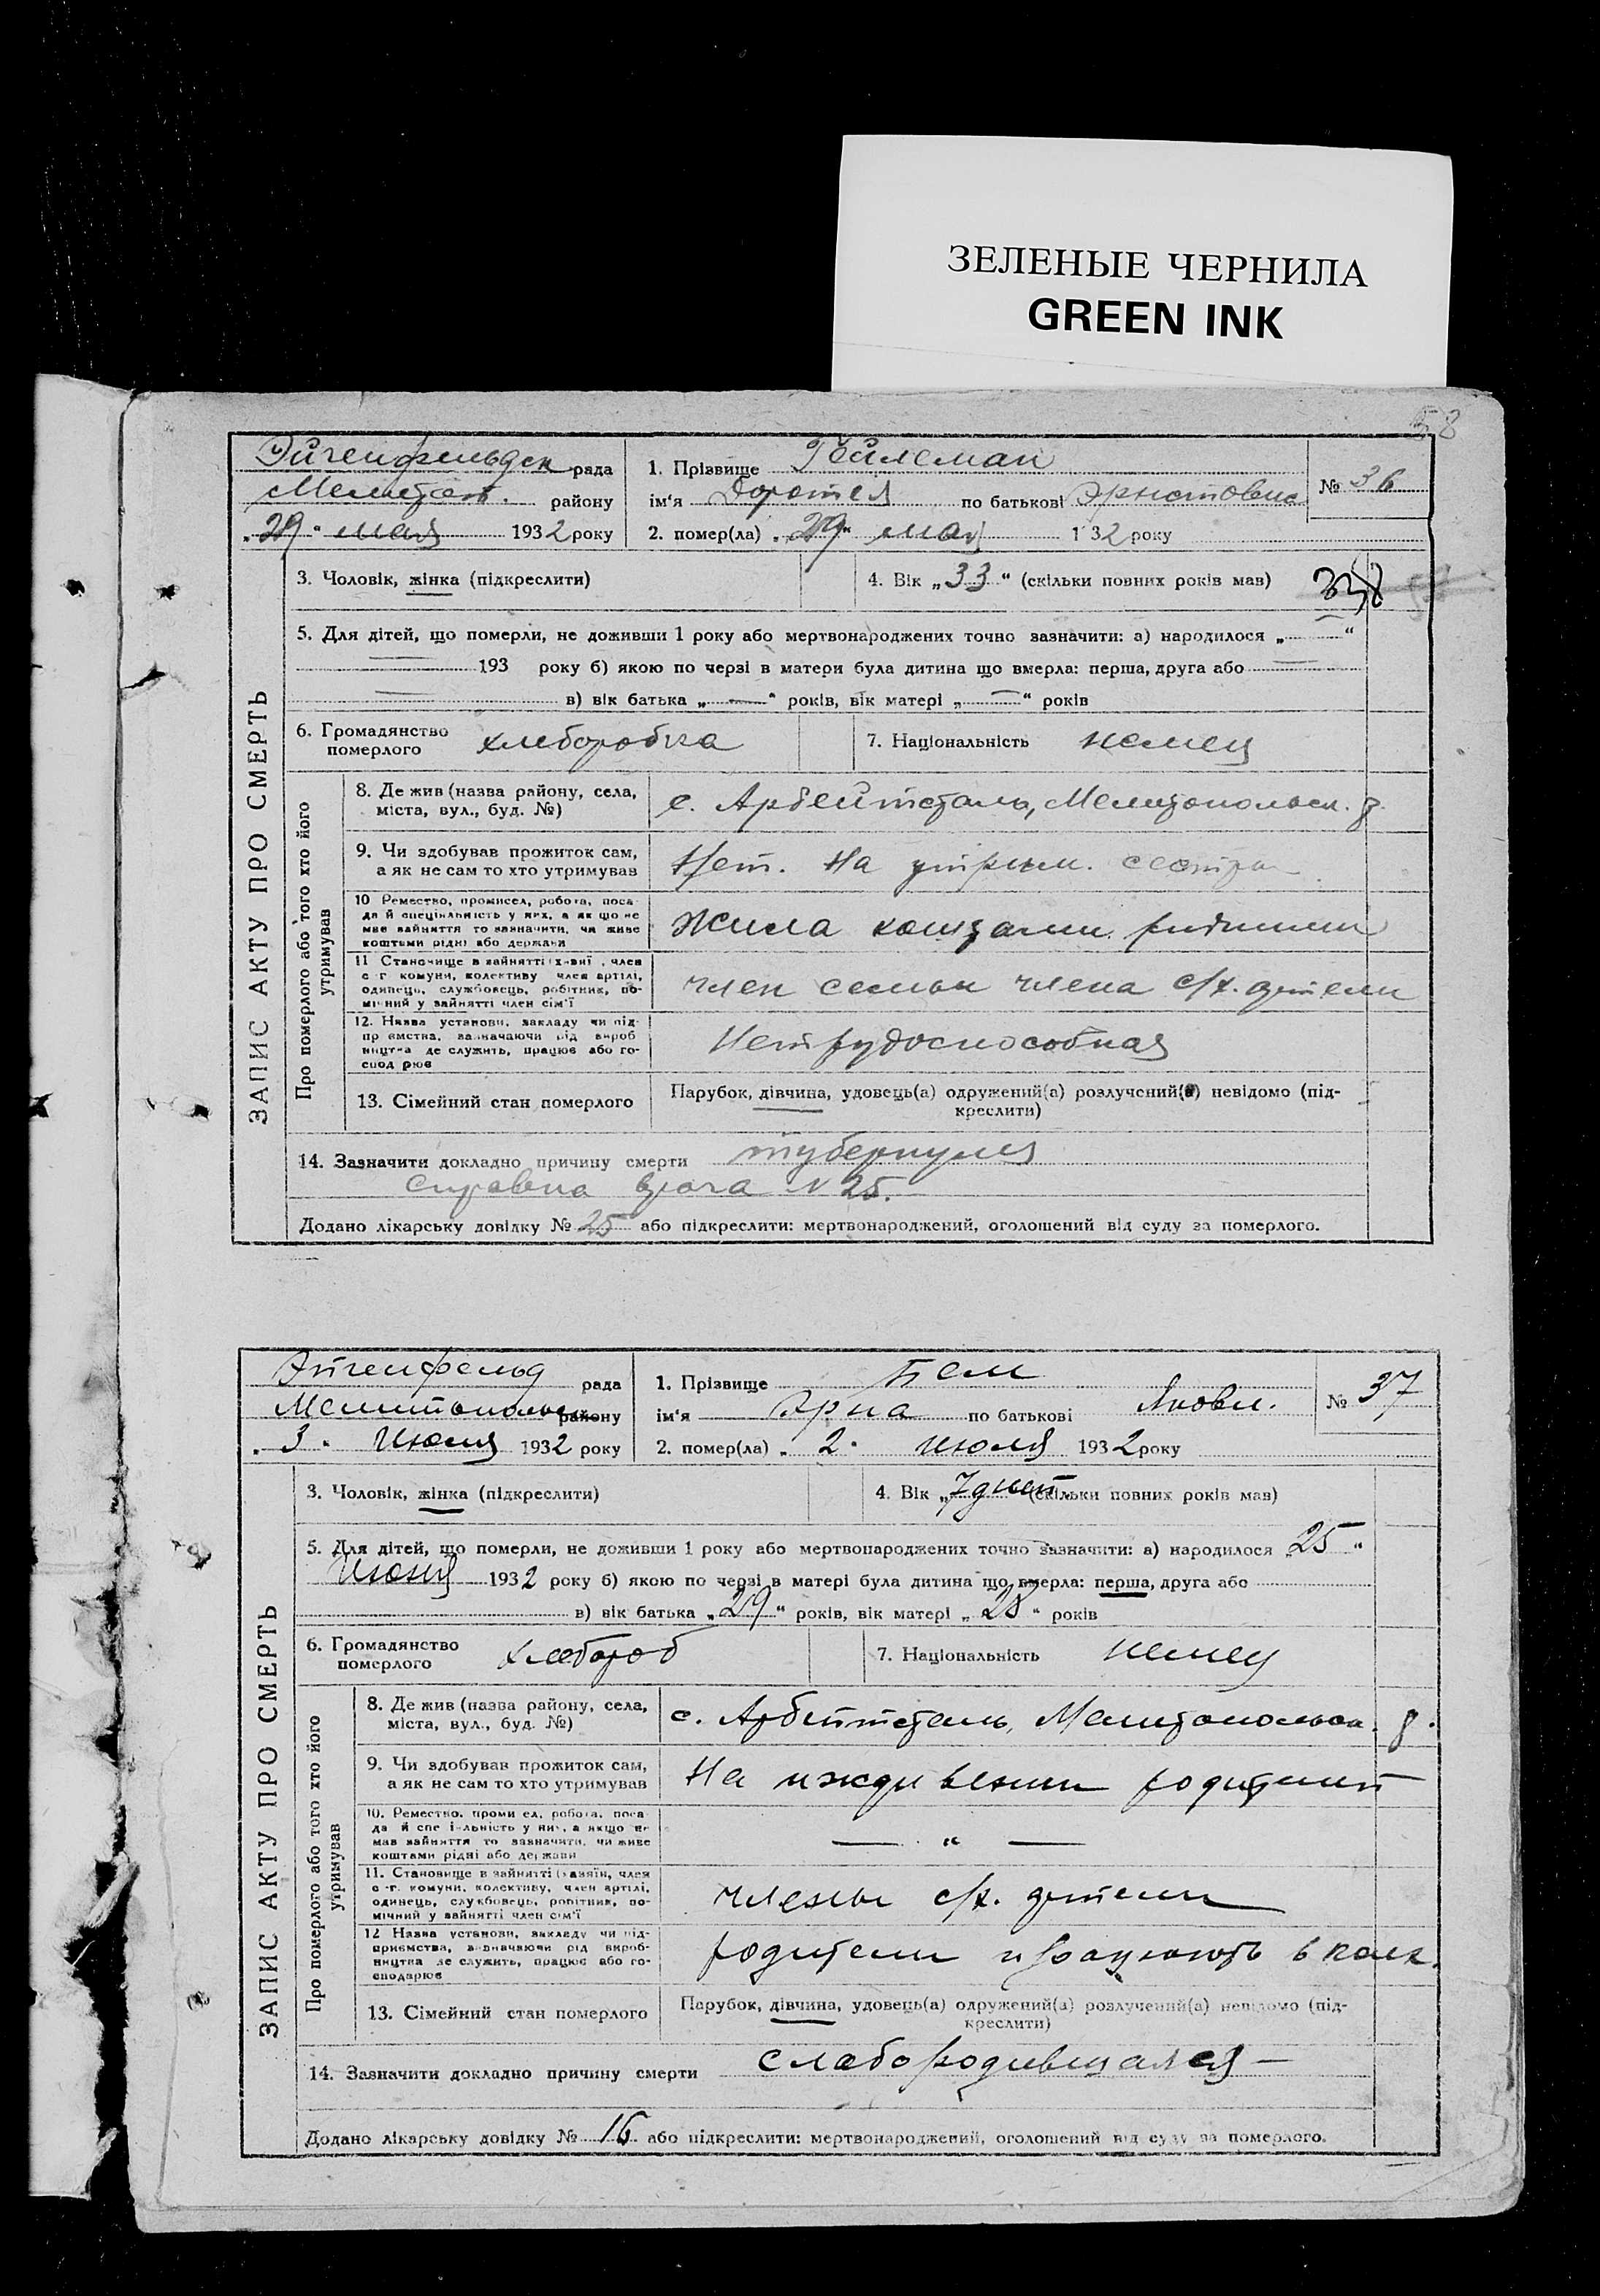 ЗЕЛЕНЫЕ ЧЕРНИЛА
GREEN INK
58
ЗАПИС АКТУ ПРО СМЕРТЬ
Эйгенфельдск рада
Мелитоп. району
„29“ мая 1932 року
1. Прізвище Гейлеман
ім‘я Доротея по батькові Эрнстовна
№ 36
2. помер(ла) „29“ мая 1932 року
3. Чоловік, жінка (підкреслити)
4. Вік „33“ (скільки повних років мав)
5. Для дітей, що померли, не доживши 1 року або мертвонароджених точно зазначити: а) народилося „—“
— 193 року б) якою по черзі в матери була дитина що вмерла: перша, друга або —
— в) вік батька „—“ років, вік матері „—“ років
6. Громадянство померлого хлеборобка
7. Національність немец
Про померлого або того хто його утримував
8. Де жив (назва району, села, міста, вул., буд. №)
с. Арбейтсталь, Мелитопольск. р.
9. Чи здобував прожиток сам, а як не сам то хто утримував
Нет. На утрим. сестры
10 Ремество, промисел, робота, посада й спеціяльність у них, а якщо не мав зайняття то зазначити, чи живе коштами рідні або держави
Жила коштами
11 Становище в зайнятті член с-г комуни, колективу член артілі, одинець, службовець, робітник, помічний у зайнятті член сім‘ї
член семьи члена с/х. артели
12. Назва установи, закладу чи підприємства, зазначаючи рід виробництва де служить, працює або господарює
Нетрудоспособная
13. Сімейний стан померлого
Парубок, дівчина, удовець(а) одружений(а) розлучений(а) невідомо (підкреслити)
14. Зазначити докладно причину смерти туберкулез
справка врача № 25.
Додано лікарську довідку № 25 або підкреслити: мертвонароджений, оголошений від суду за померлого.
ЗАПИС АКТУ ПРО СМЕРТЬ
Эйгенфельд рада
Мелитопольск району
„3“ Июля 1932 року
1. Прізвище Бем
ім‘я Эрна по батькові Яковл.
№ 37
2. помер(ла) „2“ июля 1932 року
3. Чоловік, жінка (підкреслити)
4. Вік „7 дней“ (скільки повних років мав)
5. Для дітей, що померли, не доживши 1 року або мертвонароджених точно зазначити: а) народилося „25“
Июня 1932 року б) якою по черзі в матері була дитина що вмерла: перша, друга або
в) вік батька „29“ років, вік матері „28“ років
6. Громадянство померлого хлебороб
7. Національність немец
Про померлого або того хто його утримував
8. Де жив (назва району, села, міста, вул., буд. №)
с. Арбейтсталь, Мелитопольск. р.
9. Чи здобував прожиток сам, а як не сам то хто утримував
На иждивении родителей
10. Ремество, промисел, робота, посада й спеціяльність у них, а якщо не мав зайняття то зазначити, чи живе коштами рідні або держави
— “ —
11. Становище в зайнятті (хазяїн, член с-г. комуни, колективу, член артілі, одинець, службовець, робітник, помічний у зайнятті член сім‘ї
члены с/х. артели
12 Назва установи, закладу чи підприємства, зазначаючи рід виробництва де служить, працює або господарює
родители працюють в колх.
13. Сімейний стан померлого
Парубок, дівчина, удовець(а) одружений(а) розлучений(а) невідомо (підкреслити)
14. Зазначити докладно причину смерти слабородившаяся —
Додано лікарську довідку № 16 або підкреслити: мертвонароджений, оголошений від суду за померлого.